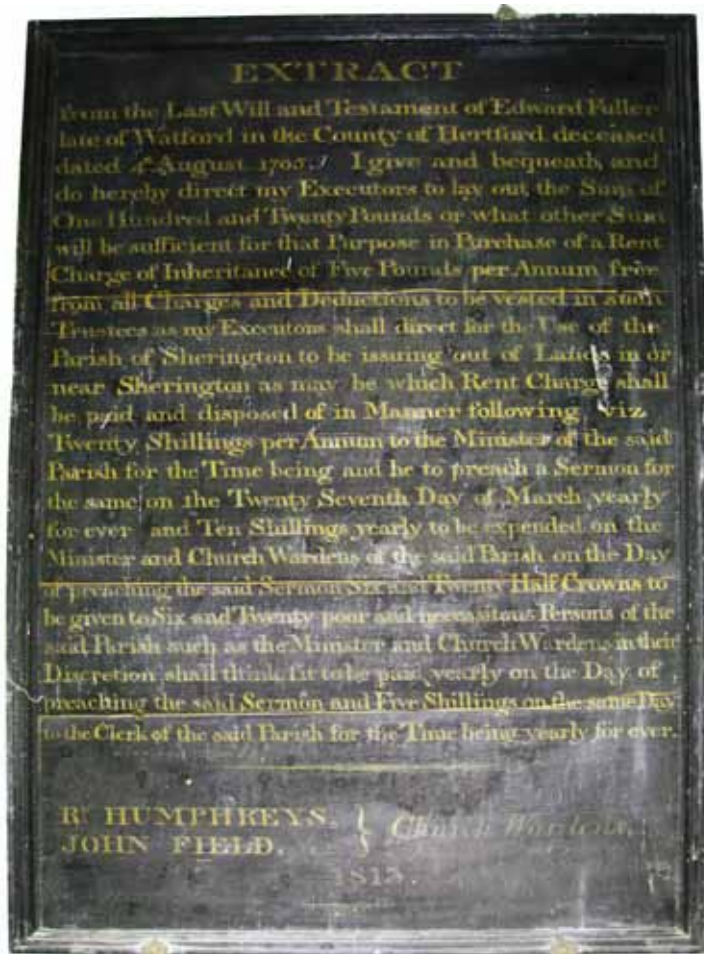 EXTRACT
from the Last Will and Testament of Edward Fuller
late of Watford in the County of Hertford deceased
dated August I give and bequeath, and
do hereby direct my Executors to lay out the Sum of
One Hundred and Twenty Pounds or what other Sum
will be sufficient for that Purpose in Purchase of a Rent
Charge of Inheritance of Five Pounds per Annum free
from all Charges and Deductions to be vested in such
Trustees as my Executors shall direct for the Use of the
Parish of Sherington to be issuing out of Lands in or
near Sherington as may be which Rent Charge shall
be paid and disposed of in Manner following viz
Twenty Shillings per Annum to the Minister of the said
Parish for the Time being and he to preach a Sermon for
the same on the Twenty Seventh Day of March yearly
for ever and Ten Shillings yearly to be expended on the
Minister and Church Wardens of the said Parish on the Day
of preaching the said Sermon Six and Twenty Half Crowns to
be given to Six and Twenty poor and necessitous Persons of the
said Parish such as the Minister and Church Wardens in their
Discretion shall think fit to be paid yearly on the Day of
preaching the said Sermon and Five Shillings on the same Day
to the Clerk of the said Parish for the Time being yearly for ever.
HUMPHREYS. } Church Wardens.
JOHN FIELD.
1815.